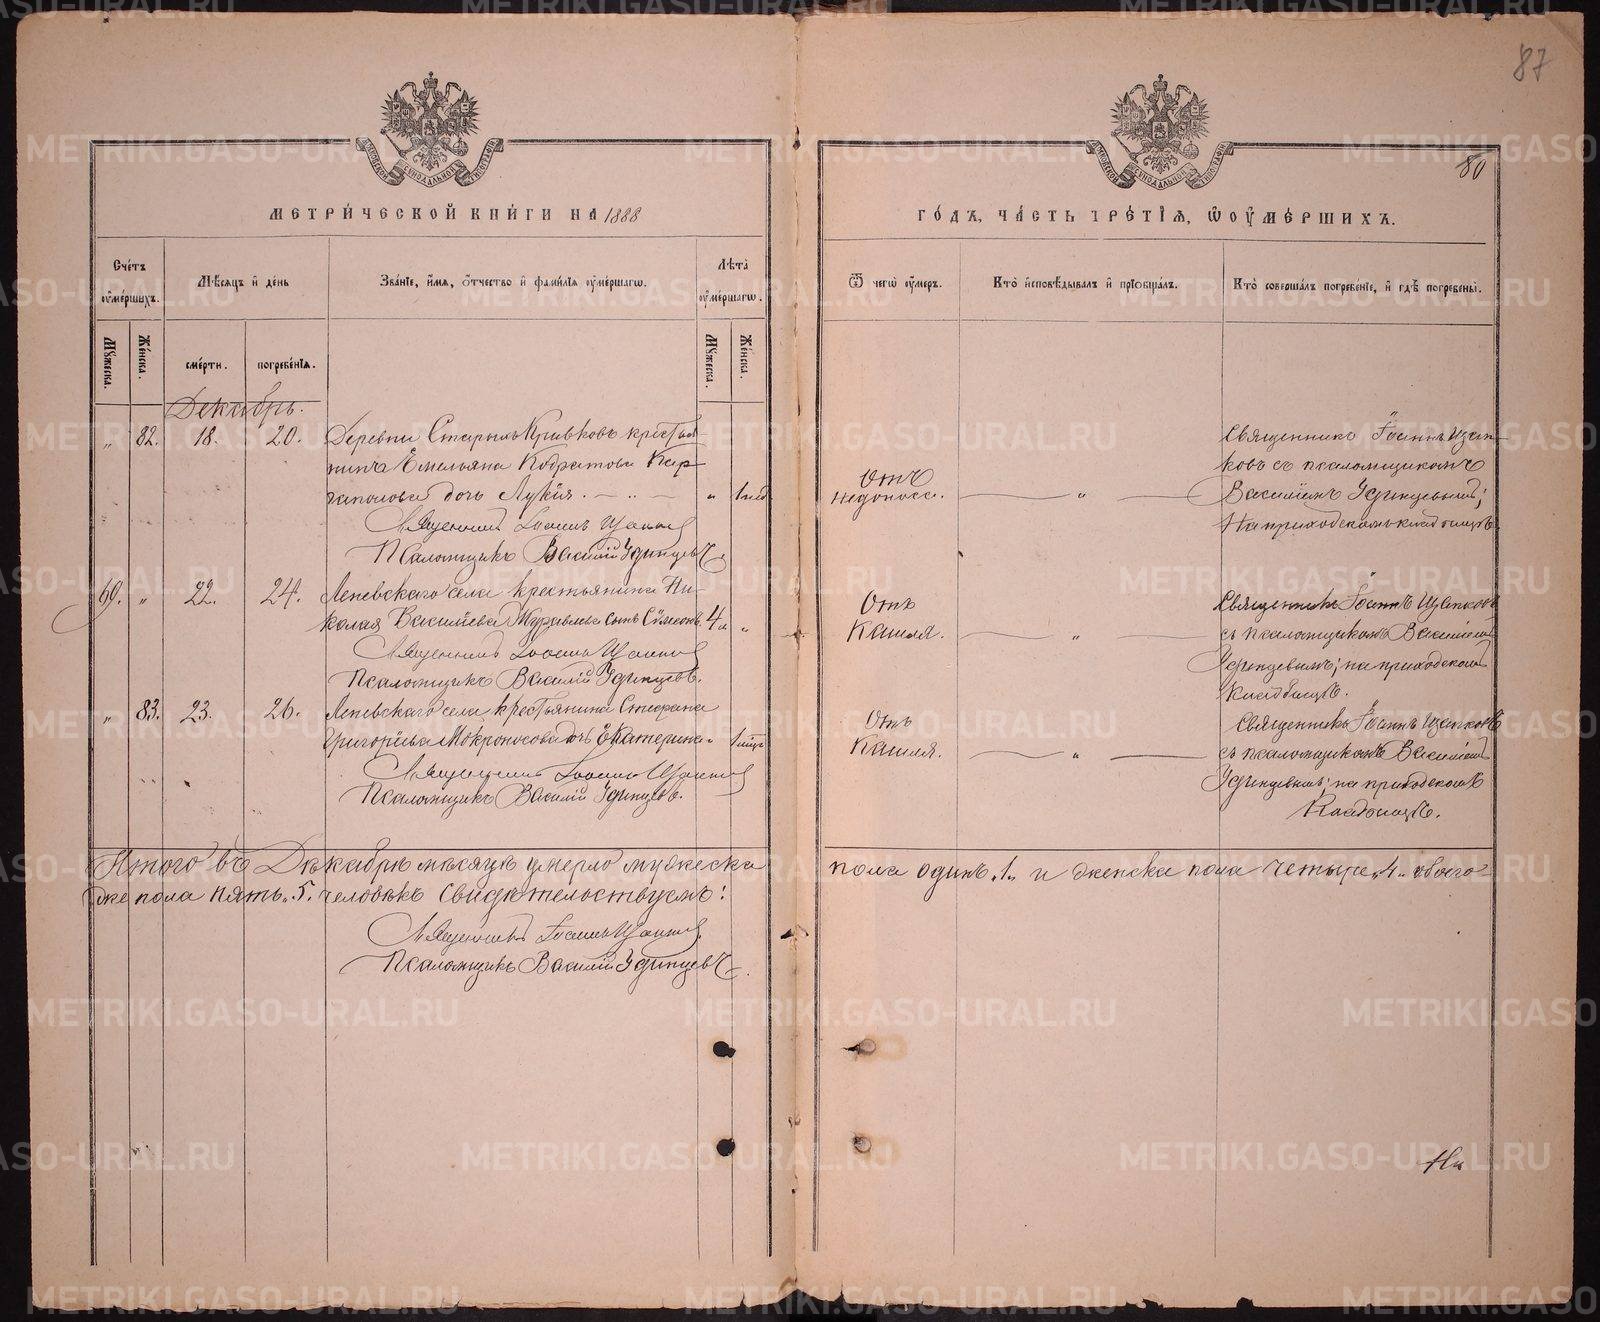 87
80
МОСКОВСКОЙ СѴНОДАЛЬНОЙ ТИПОГРАФІИ
МЕТРИЧЕСКОЙ КНИГИ НА 1888
Счетъ оумершихъ.
Мѣсяцъ и день
Званіе, имя, отчество и фамилія оумершагѡ.
Лѣта оумершагѡ.
Мужеска.
Женска.
смерти.
погребенія.
Мужеска.
Женска.
Декабрь.
„ 82. 18. 20. Деревни Старыхъ Кривковъ крестья-
нина Емельяна Кодратова Кар-
гаполова дочь Лукія. „ 1 нед
Священникъ Іоаннъ
Псаломщикъ Василій Удинцевъ.
60. „ 22. 24. Лепевскаго села крестьянина Ни-
колая Васильева Журавлева сынъ Сѵмеонъ. 4 „
Священникъ Іоаннъ
Псаломщикъ Василій Удинцевъ.
„ 83. 23. 26. Лепевскаго села крестьянина Стефана
Григорьева Мокроносова дочь Екатерина
Священникъ Іоаннъ
Псаломщикъ Василій Удинцевъ.
Итого въ Декабрѣ мѣсяцѣ умерло мужеска
же пола пять „5„ человѣкъ Свидѣтельствуемъ:
Священникъ Іоаннъ
Псаломщикъ Василій Удинцевъ.
МОСКОВСКОЙ СѴНОДАЛЬНОЙ ТИПОГРАФІИ
ГОДЪ, ЧАСТЬ ТРЕТІЯ, Ѡ ОУМЕРШИХЪ.
Ѿ чегѡ оумеръ.
Кто исповѣдывалъ и пріобщалъ.
Кто совершалъ погребеніе, и гдѣ погребены.
Отъ
недоноса. „
Священникъ Іоаннъ
съ псаломщикомъ
Василіемъ Удинцевымъ;
На приходскомъ кладбищѣ.
Отъ
Кашля. „
Священникъ Іоаннъ
съ псаломщикомъ Василіемъ
Удинцевымъ; на приходскомъ
Кладбищѣ.
Отъ
Кашля. „
Священникъ Іоаннъ
съ псаломщикомъ Василіемъ
Удинцевымъ; на приходскомъ
Кладбищѣ.
пола одинъ „1„ и женска пола четыре „4„ обоего
METRIKI.GASO-URAL.RU